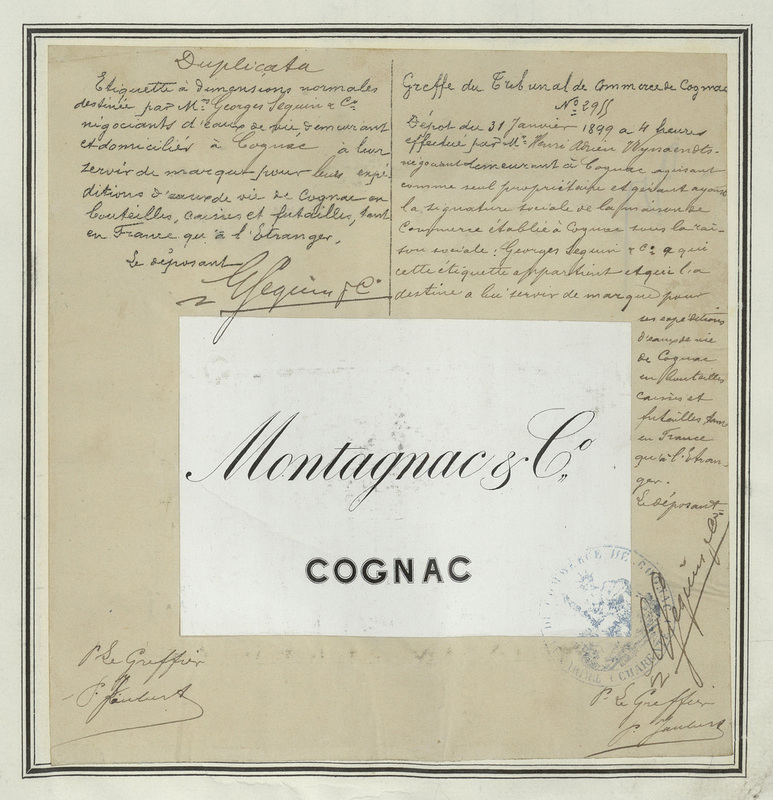 Duplicata
Etiquette à dimensions normales
destinée par Mrs Georges Seguin & Co
négociants d'eaux de vie, demeurant
et domiciliés à Cognac à leur
servir de marque pour leurs expé-
ditions d'eaux de vie de Cognac en
bouteilles, caisses et futailles, tant
en France qu'à l'Etranger.
Le déposant
G Seguin & Co
Greffe du Tribunal de Commerce de Cognac
No 2955
Dépôt du 31 Janvier 1899 a 4 heures
effectué par Mr Henri Adrien Wynaendts.
négociant demeurant à Cognac agissant
comme seul propriétaire et gérant ayant
la signature sociale de la maison de
Commerce établie à Cognac sous la rai-
son sociale: Georges Seguin & Co a qui
cette étiquette appartient et qui l'a
destine a lui servir de marque pour
ses expéditions
d'eaux de vie
de Cognac
en bouteilles
caisses et
futailles, tant
en France
qu'à l'Etran-
ger.
Le déposant
G Seguin & Co
Montagnac & Co
COGNAC
COMMERCE DE
P Le Greffier
P. Jaubert
P. Le Greffier
P. Jaubert